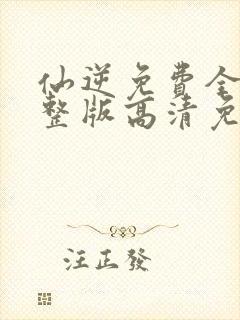 仙逆免費全
整版高清免
汪正發